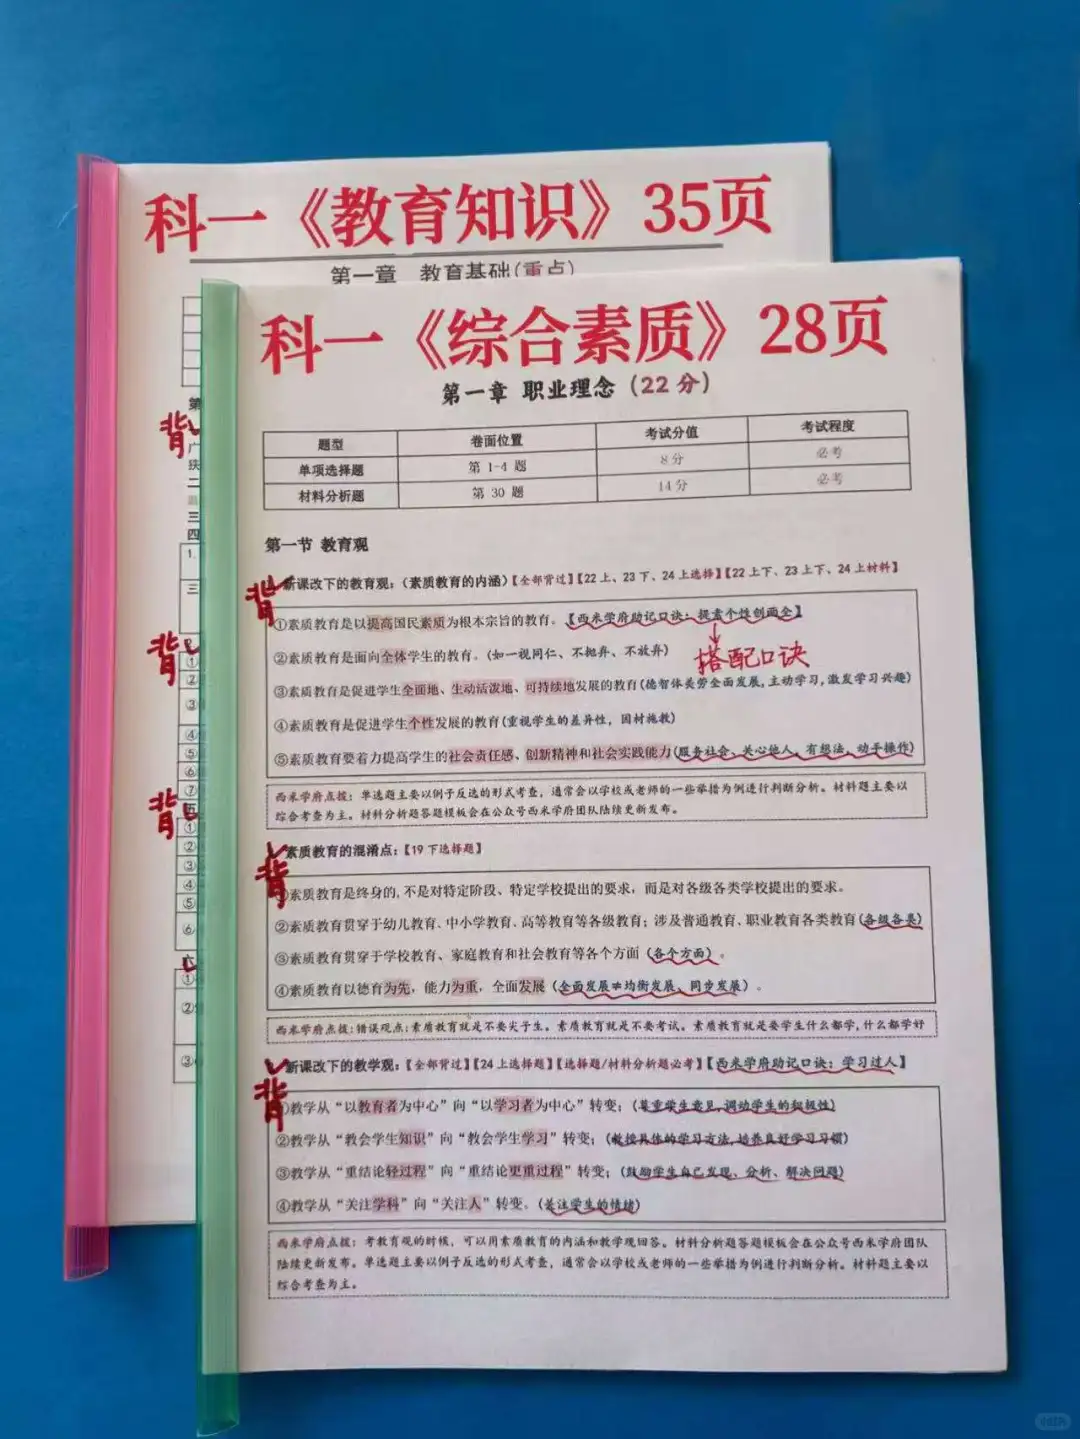 科一《教育知识》35页
第一章 教育基础(重点)
科一《综合素质》28页
第一章 职业理念（22 分）
题型 卷面位置 考试分值 考试程度
单项选择题 第 1-4 题 8分 必考
材料分析题 第 30 题 14分 必考
第一节 教育观
背 新课改下的教育观：（素质教育的内涵）【全部背过】【22 上、23 下、24 上选择】【22 上下、23 上下、24 上材料】
①素质教育是以提高国民素质为根本宗旨的教育。【西米学府助记口诀：提素个性创两全】
搭配口诀
②素质教育是面向全体学生的教育。（如一视同仁、不抛弃、不放弃）
③素质教育是促进学生全面地、生动活泼地、可持续地发展的教育（德智体美劳全面发展，主动学习，激发学习兴趣）
④素质教育是促进学生个性发展的教育（重视学生的差异性，因材施教）
⑤素质教育要着力提高学生的社会责任感、创新精神和社会实践能力（服务社会、关心他人，有想法，动手操作）
西米学府点拨：单选题主要以例子反选的形式考查，通常会以学校或老师的一些举措为例进行判断分析。材料题主要以
综合考查为主。材料分析题答题模板会在公众号西米学府团队陆续更新发布。
背 素质教育的混淆点：【19 下选择题】
①素质教育是终身的，不是对特定阶段、特定学校提出的要求，而是对各级各类学校提出的要求。
②素质教育贯穿于幼儿教育、中小学教育、高等教育等各级教育；涉及普通教育、职业教育各类教育（各级各类）
③素质教育贯穿于学校教育、家庭教育和社会教育等各个方面（各个方面）。
④素质教育以德育为先，能力为重，全面发展（全面发展≠均衡发展、同步发展）。
西米学府点拨：错误观点：素质教育就是不要尖子生。素质教育就是不要考试。素质教育就是要学生什么都学，什么都学好
背 新课改下的教学观：【全部背过】【24 上选择题】【选择题/材料分析题必考】【西米学府助记口诀：学习过人】
①教学从“以教育者为中心”向“以学习者为中心”转变；（尊重学生意见，调动学生的积极性）
②教学从“教会学生知识”向“教会学生学习”转变；（教授具体的学习方法，培养良好学习习惯）
③教学从“重结论轻过程”向“重结论更重过程”转变；（鼓励学生自己发现、分析、解决问题）
④教学从“关注学科”向“关注人”转变。（关注学生的情绪）
西米学府点拨：考教育观的时候，可以用素质教育的内涵和教学观回答。材料分析题答题模板会在公众号西米学府团队
陆续更新发布。单选题主要以例子反选的形式考查，通常会以学校或老师的一些举措为例进行判断分析。材料题主要以
综合考查为主。
背
背
背